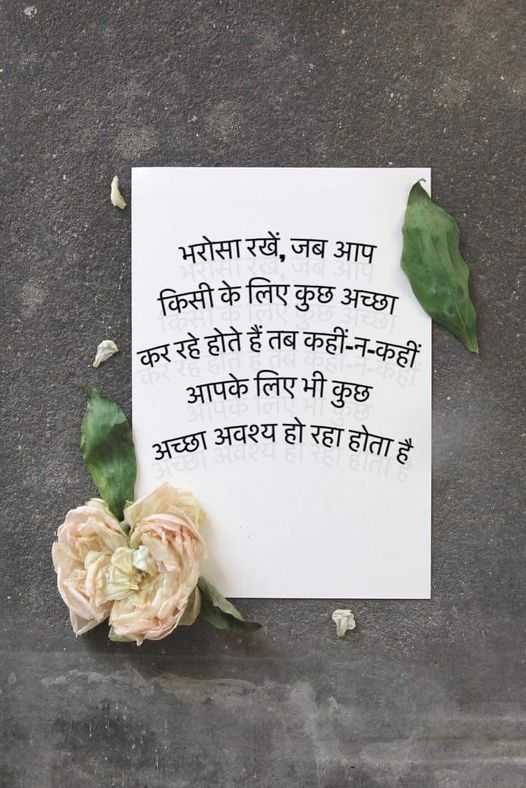 भरोसा रखें, जब आप
किसी के लिए कुछ अच्छा
कर रहे होते हैं तब कहीं-न-कहीं
आपके लिए भी कुछ
अच्छा अवश्य हो रहा होता है